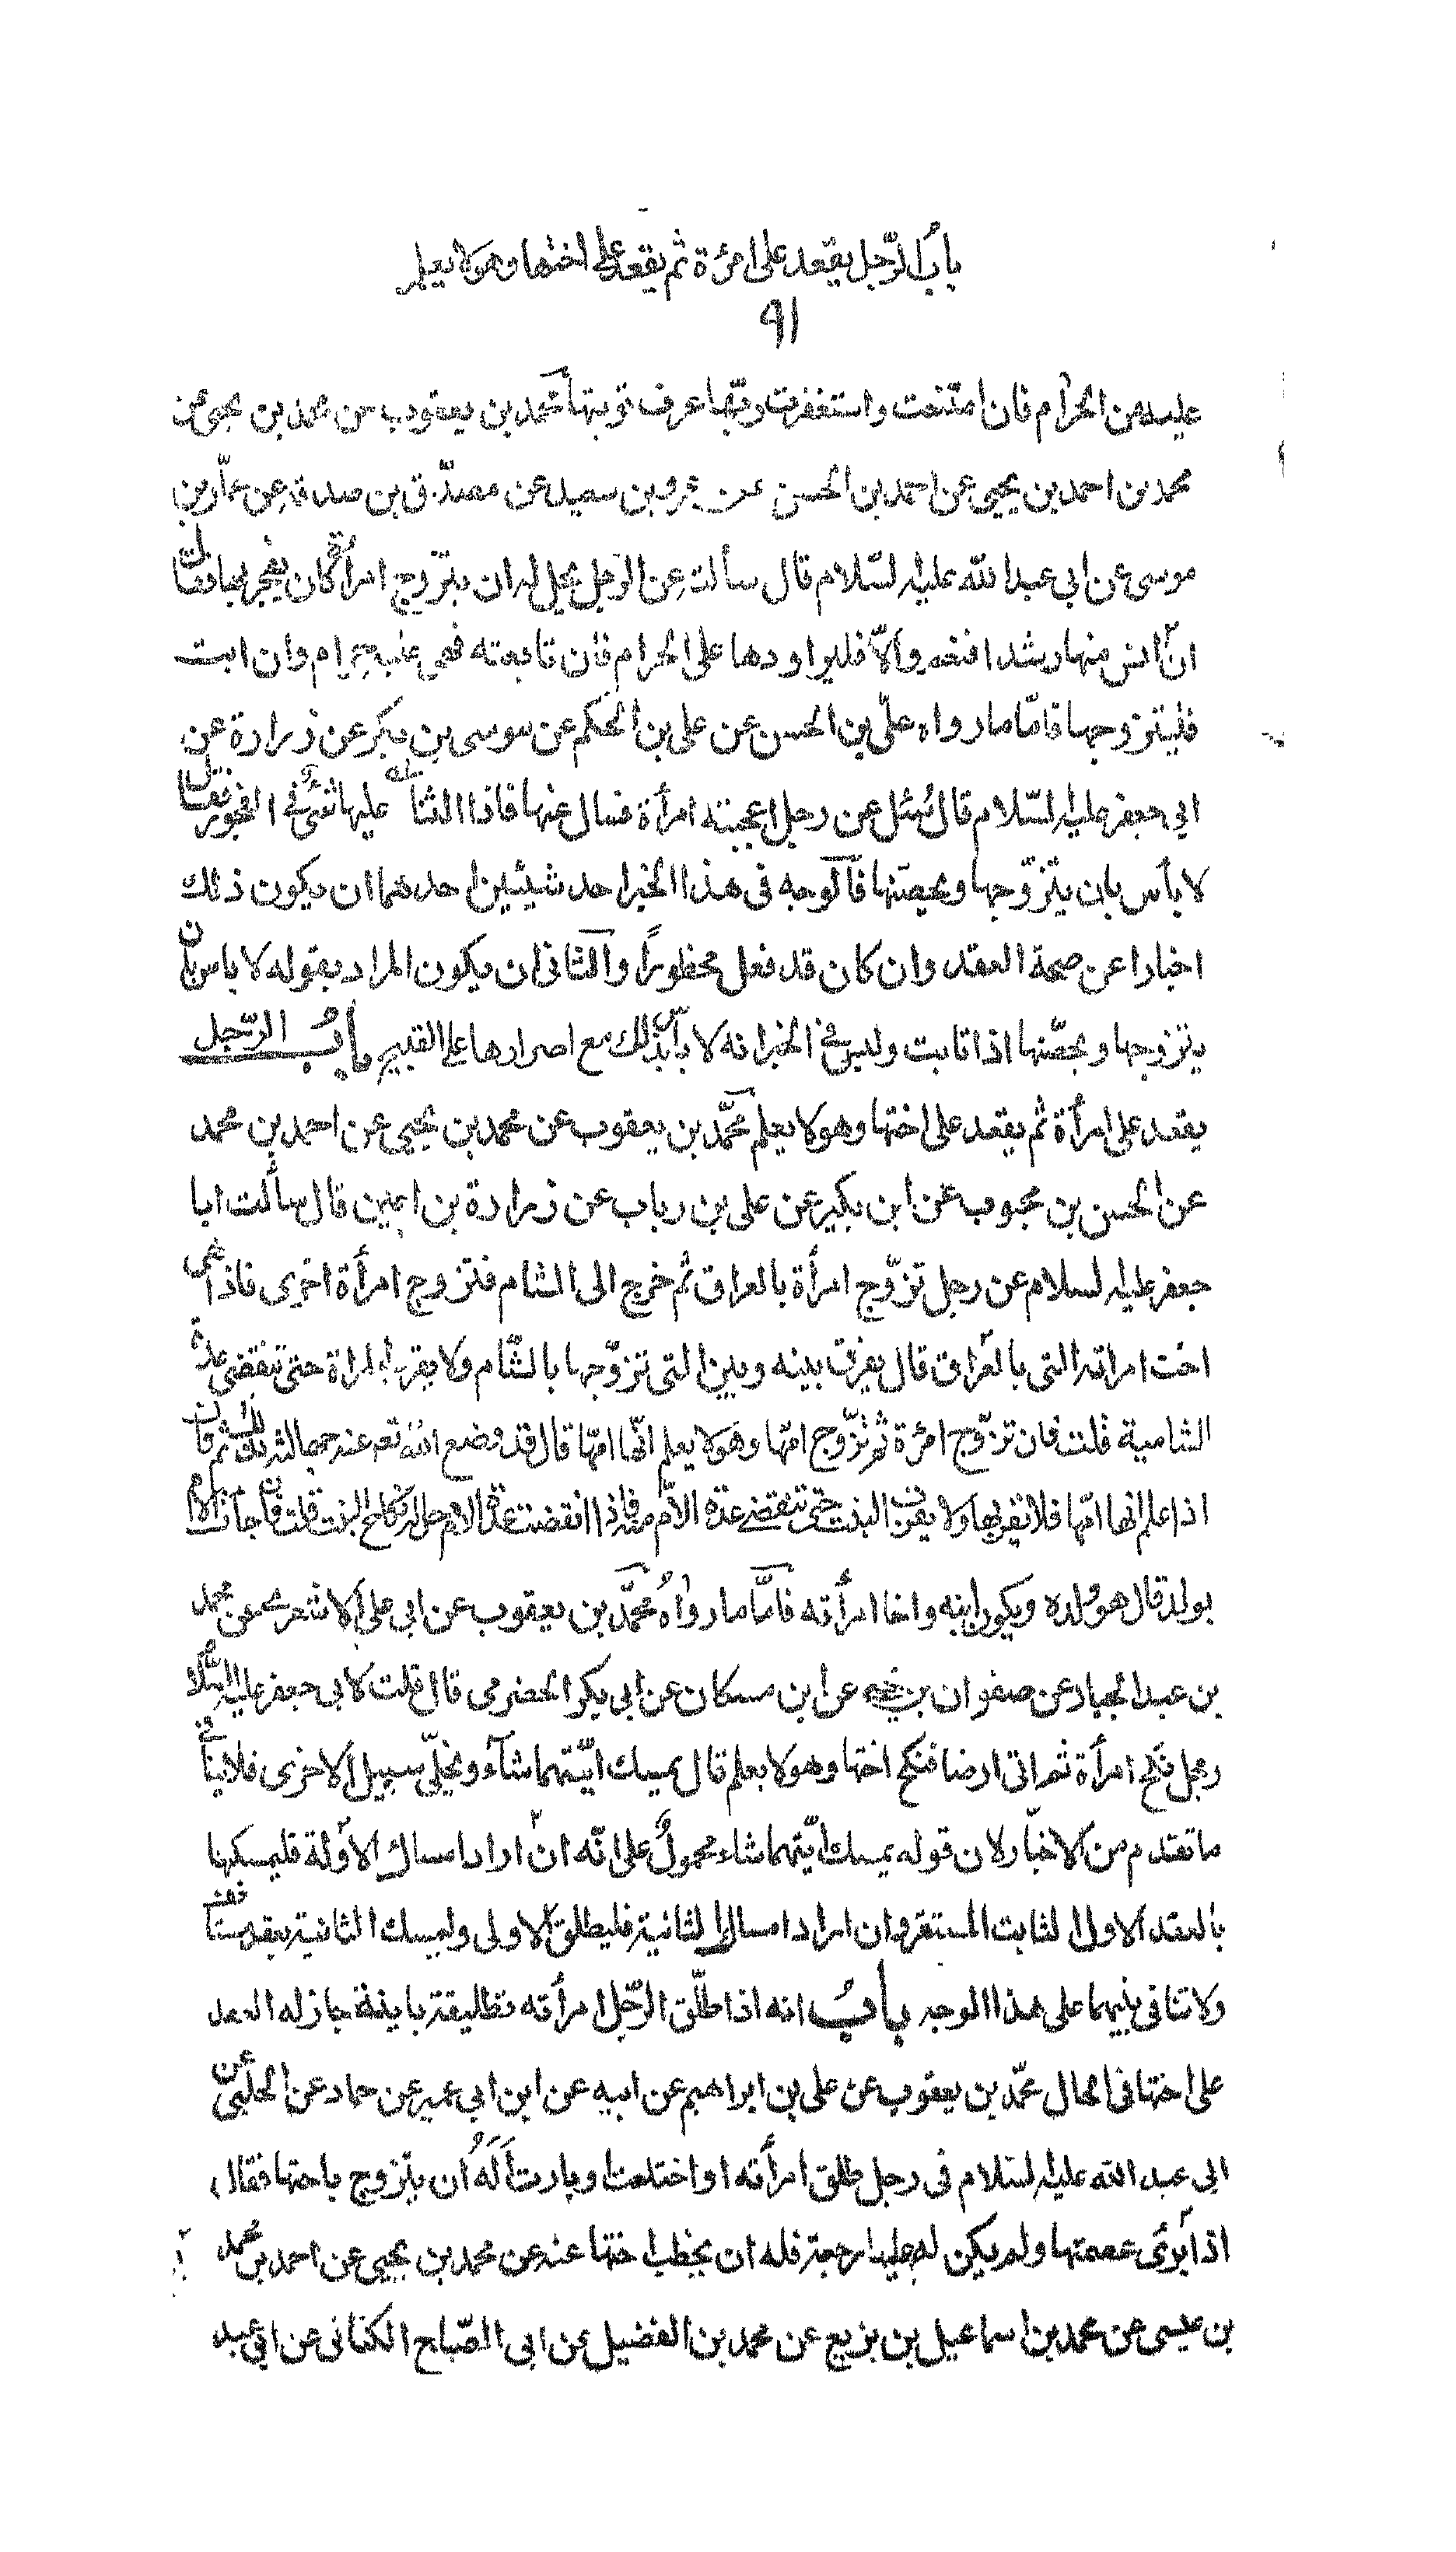 باب الرّجل يقعد على امرءة ثم يقعد على اختها وهو لا يعلم
٩١
عليه من الحرام فان امتنعت واستغفرت ربّها عرف توبتها محمد بن يعقوب عن محمد بن يحيى عن
محمد بن احمد بن يحيى عن احمد بن الحسن عن عمرو بن سعيد عن مصدّق بن صدقة عن عمّار بن
موسى عن ابي عبد الله عليه السّلام قال سألته عن الرّجل يحل له ان يتزوج امرأة كان يفجر بها فقال
انّ انس منها رشدا فنعم والّا فليراودها على الحرام فان تابعته فهي عليه حرام وان ابت
فليتزوجها فامّا ما رواه علّي بن الحسن عن علي بن الحكم عن موسى بن بكر عن زرارة عن
ابي جعفر عليه السّلام قال سُئل عن رجل اعجبته امرأة فسال عنها فاذا الثناء عليها شئ في الفجور فقال
لا بأس بان يتزّوجها ويحصّنها فالوجه فى هذا الخبر احد شيئين احدهما ان يكون ذلك
اخبارا عن صحة العقد وان كان قد فعل محظوراً والثانى ان يكون المراد بقوله لا باس بان
يتزوجها ويحصّنها اذا تابت وليس في الخبر انه لا بأس بذلك مع اصرارها على القبيح بابُ الرّجل
يقعد على امرأة ثم يقعد على اختها وهو لا يعلم محمّد بن يعقوب عن محمد بن يحيى عن احمد بن محمد
عن الحسن بن محبوب عن ابن بكير عن على بن رياب عن زرارة بن اعين قال سألت ابا
جعفر عليه السلام عن رجل تزوّج امرأة بالعراق ثم خرج الى الشام فتزوج امرأة اخرى فاذا هى
اخت امراته التى بالعراق قال يفرق بينه وبين التى تزوّجها بالشّام ولا يقرب المراة حتى تنقضى عدة
الشامية قلت فان تزّوج امرءة ثم تزّوج امّها وهو لا يعلم انّها امّها قال قد وضع الله تعم عنه جهالته بذلك ثم قال
اذا علم انها امّها فلا يقربها ولا يقرب البنت حتى تنقضى عدة الامّ منه فاذا انقضت عدة الام حل له نكاح البنت قلت فان جاءت الام
بولد قال هو ولده ويكون ابنه واخا امرأته فامّا ما رواهُ محمّد بن يعقوب عن ابى على الاشعرى عن محمد
بن عبد الجبار عن صفوان بن يحيى عن ابن مسكان عن ابى بكر الحضرمى قال قلت لابى جعفر عليه السّلام
رجل نكح امرأة ثم اتى ارضا فنكح اختها وهو لا يعلم قال يمسك ايّتهما شآء ويخلّي سبيل الاخرى فلا ينافى
ما تقدم من الاخبار لان قوله يمسك ايّتهما شاء محمولٌ على انّه انّ اراد امساك الاوّلة فليمسكها
بالعقد الاول الثابت المستقر وان اراد امساك الثانية فليطلق الاولى وليمسك الثانية بعقد مستأنف
ولا تنافى بينهما على هذا الوجه بابُ انه اذا طلّق الرّجل امرأته تطليقة باينة جاز له العقد
على اختها فى الحال محمّد بن يعقوب عن على بن ابراهيم عن ابيه عن ابن ابي عمير عن حماد عن الحلبى عن
ابى عبد الله عليه السّلام فى رجل طلق امرأته او اختلعت او بارت أَلَهُ أن يتزوج باختها فقال
اذا برئ عصمتها ولم يكن له عليها رجعة فله ان يخطب اختها عنه عن محمد بن يحيى عن احمد بن محمد
بن عيسى عن محمد بن اسماعيل بن بزيع عن محمد بن الفضيل عن ابى الصّباح الكنانى عن ابي عبد